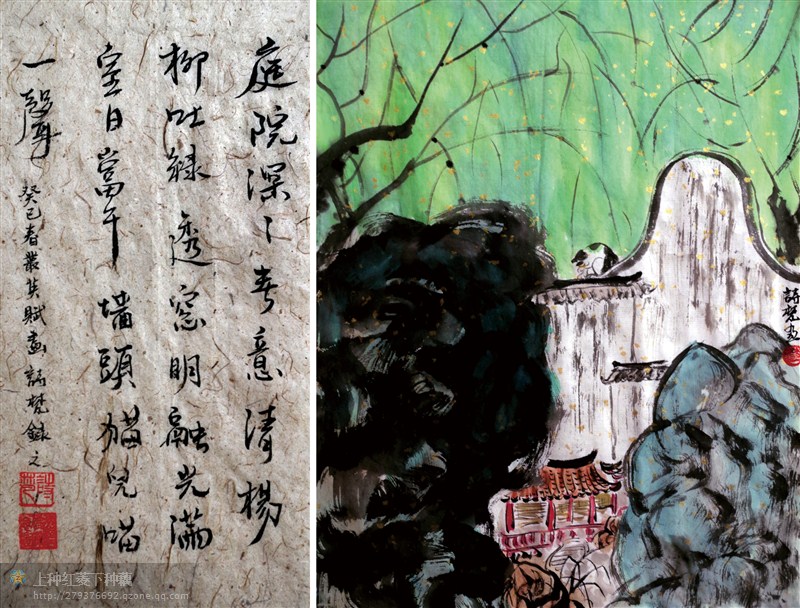 庭院深〻春意清楊
柳吐綠透窓明融光滿
室日當午墙頭猫兒喵
一聲
癸巳春叢其賦畫詩梵錄之
詩梵畫
上种红菱下种藕
http://279376692.qzone.qq.com/